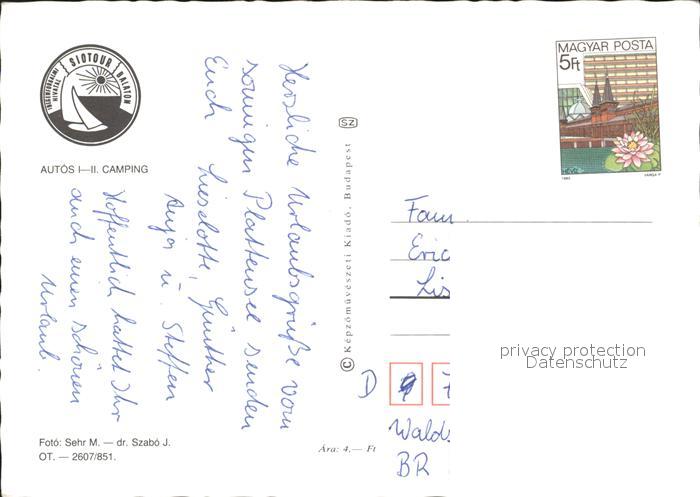 SIOTOUR BALATON
IDEGENFORGALMI HIVATAL
AUTÓS I—II. CAMPING
Herzliche Urlaubsgrüße vom
sonnigen Plattensee senden
Euch Lieselotte, Günther
Anja u. Steffen
Hoffentlich hattet Ihr
auch einen schönen
Urlaub.
Fotó: Sehr M. — dr. Szabó J.
OT. — 2607/851.
Ára: 4,— Ft
© Képzőművészeti Kiadó, Budapest SZ
MAGYAR POSTA
5Ft
HÉVÍZ
1983 VARGA P
Fam.
Eric
Lis
D
Walds
BR
privacy protection
Datenschutz